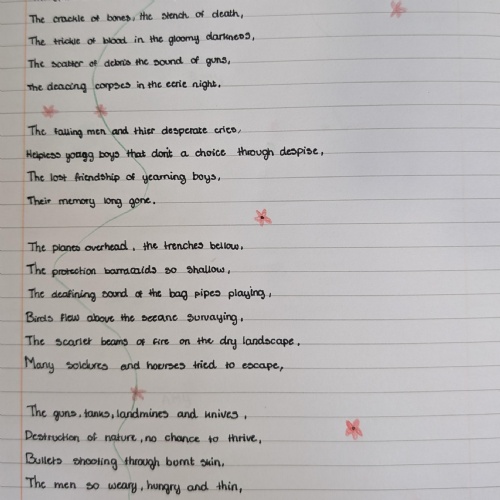 The crackle of bones, the stench of death,
The trickle of blood in the gloomy darkness,
The scatter of debris the sound of guns,
The deacing corpses in the eerie night.
The falling men and thier desperate cries,
Helpless yoagg boys that don't a choice through despise,
The lost friendship of yearning boys,
Their memory long gone.
The planes overhead, the trenches bellow,
The protection barracaids so shallow,
The deafining sound of the bag pipes playing,
Birds flew above the sceane survaying,
The scarlet beams of fire on the dry landscape,
Many soldures and hoerses tried to escape,
The guns, tanks, landmines and knives,
Destruction of nature, no chance to thrive,
Bullets shooting through burnt skin,
The men so weary, hungry and thin,